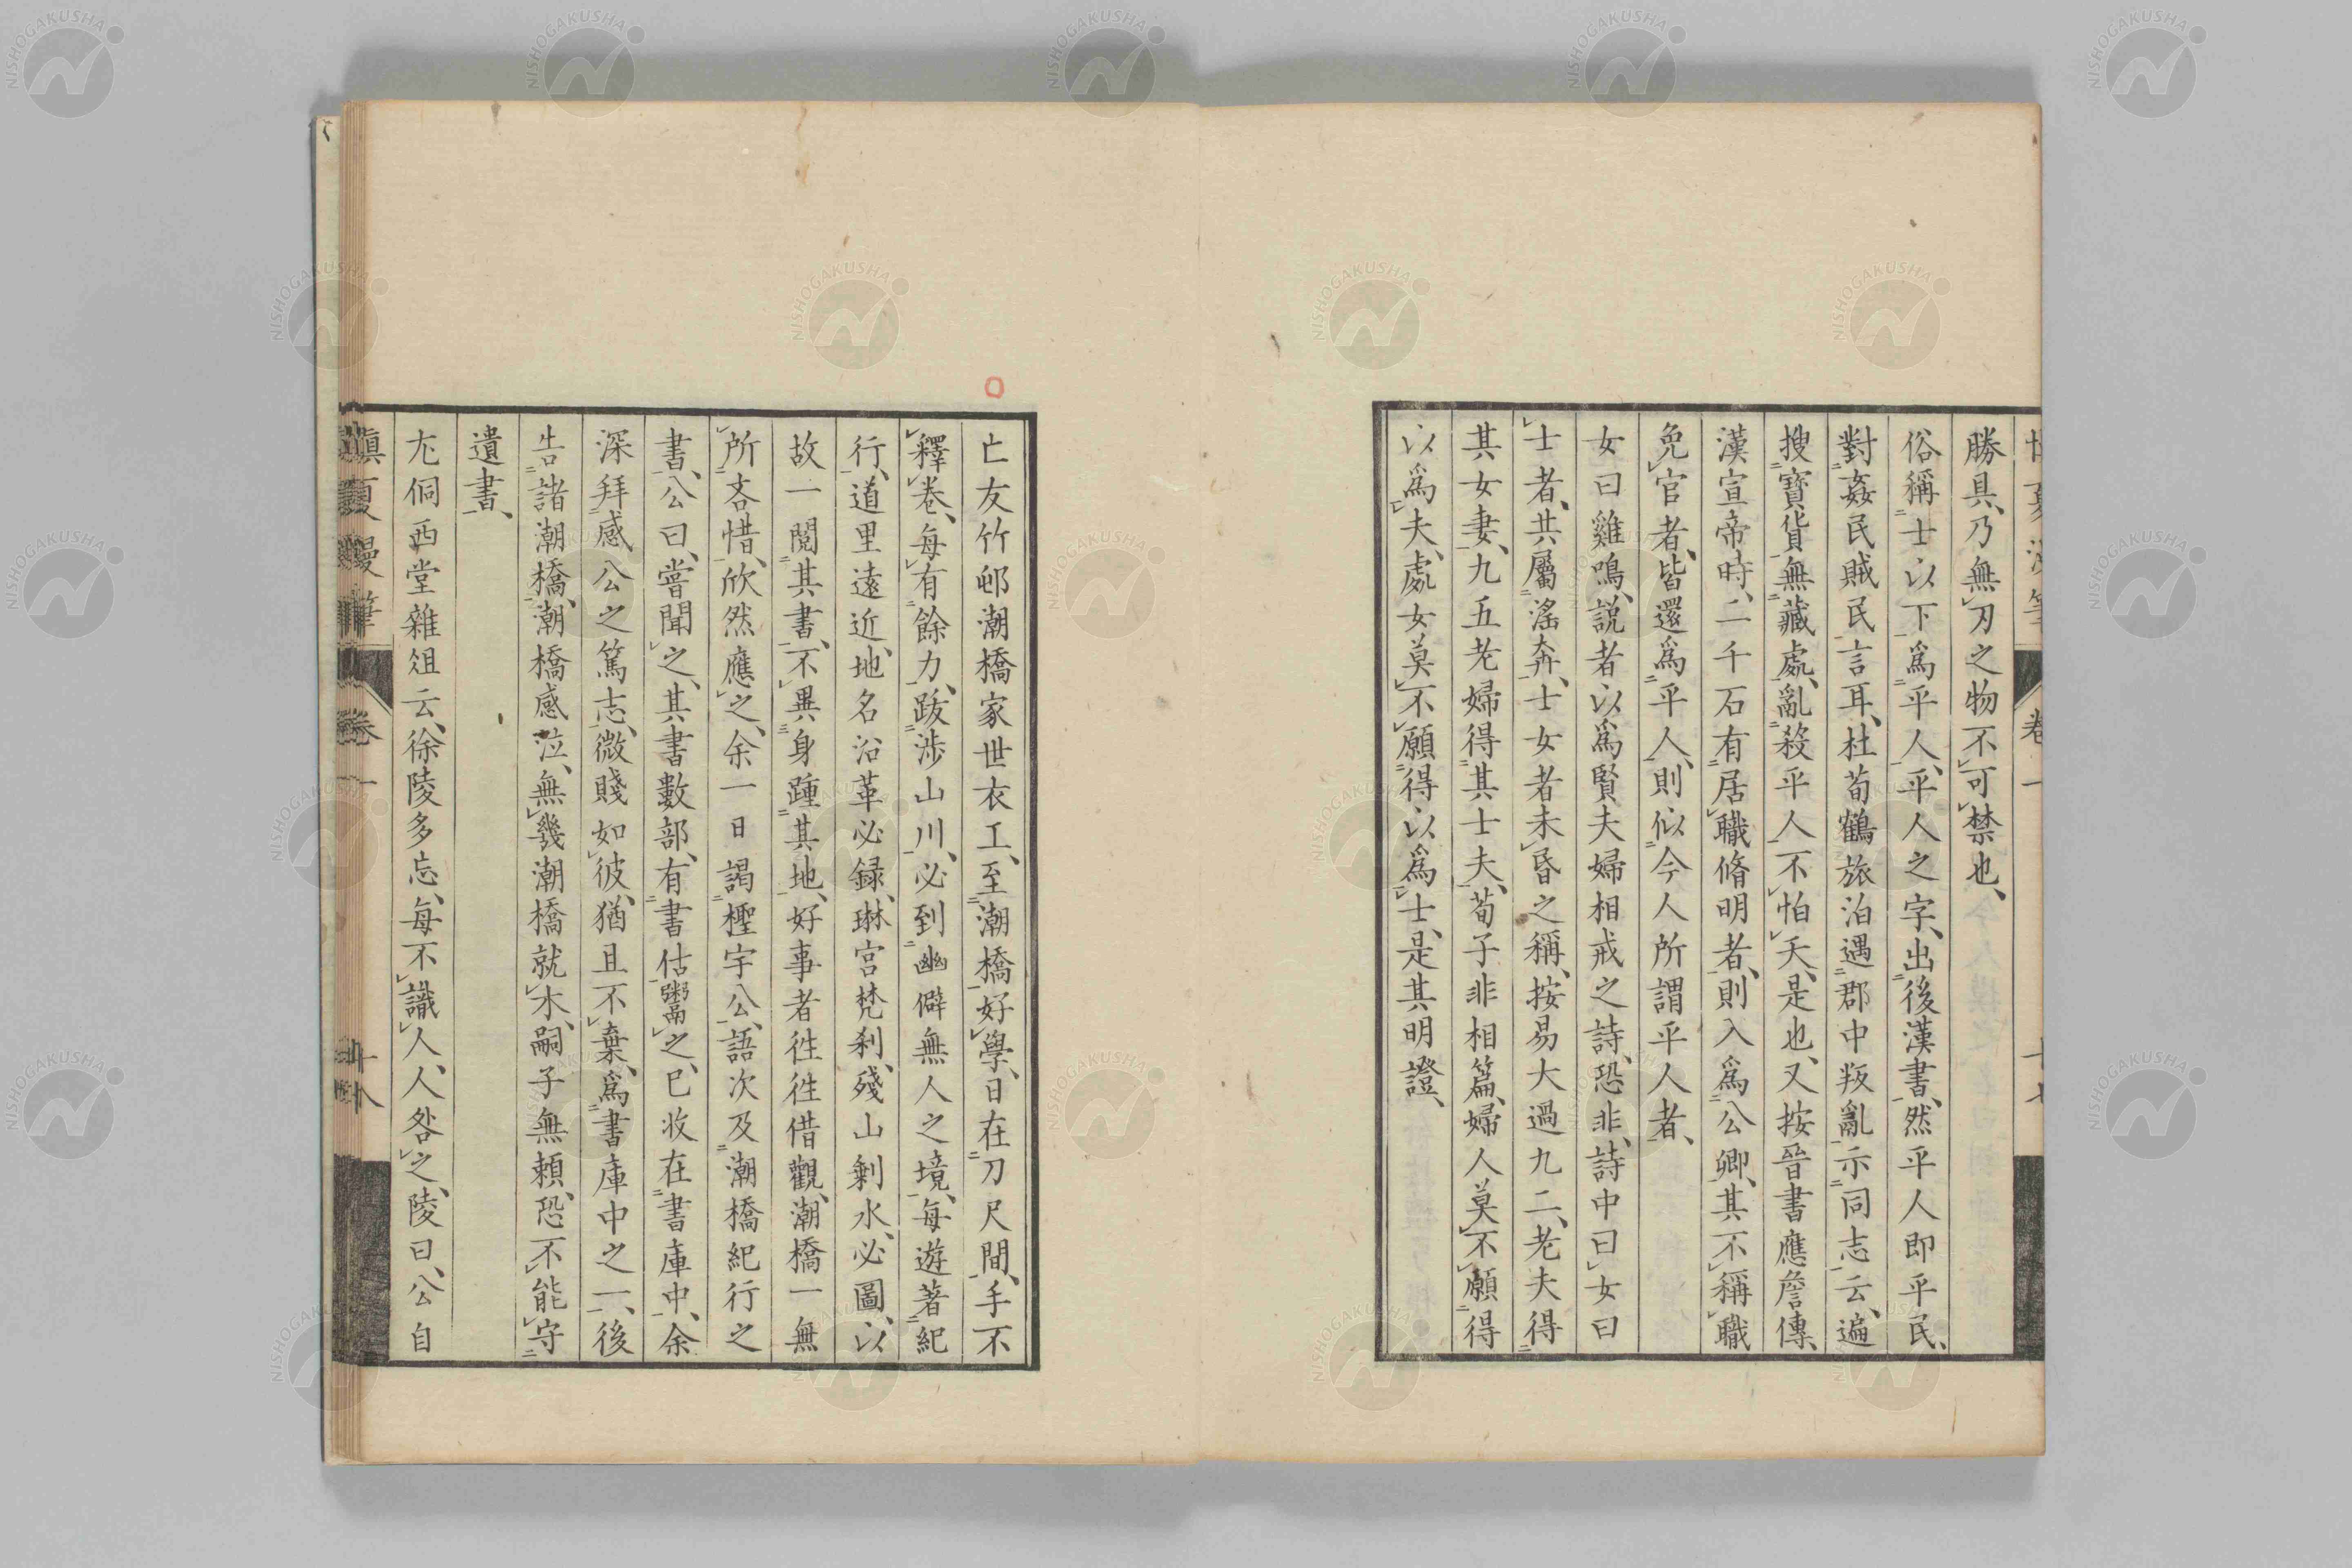 勝具、乃無刃之物不可禁也、
俗稱士以下爲平人、平人之字、出後漢書、然平人即平民、
對姦民賊民言耳、杜荀鶴旅泊遇郡中叛亂示同志云、遍
搜寶貨無藏處、亂殺平人不怕天、是也、又按晉書應詹傳、
漢宣帝時、二千石有居職脩明者、則入爲公卿、其不稱職
免官者、皆還爲平人、則似今人所謂平人者、
女曰雞鳴、説者以爲賢夫婦相戒之詩、恐非、詩中曰女曰
士者、共屬滛奔、士女者未昏之稱、按易大過九二、老夫得
其女妻、九五老婦得其士夫、荀子非相篇、婦人莫不願得
以爲夫、處女莫不願得以爲士、是其明證、
亡友竹邨潮橋家世衣工、至潮橋好學、日在刀尺間、手不
釋卷、每有餘力、跋涉山川、必到幽僻無人之境、每遊著紀
行、道里遠近、地名沿革必録、琳宮梵刹、殘山剩水、必圖、以
故一閲其書、不異身踵其地、好事者往往借觀、潮橋一無
所吝惜、欣然應之、余一日謁檉宇公、語次及潮橋紀行之
書、公曰、嘗聞之、其書數部、有書估鬻之、已收在書庫中、余
深拜感公之篤志、微賤如彼、猶且不棄、爲書庫中之一、後
告諸潮橋、潮橋感泣、無幾潮橋就木、嗣子無頼、恐不能守
遺書、
尤侗西堂雜俎云、徐陵多忘、每不識人、人咎之、陵曰、公自
卷一